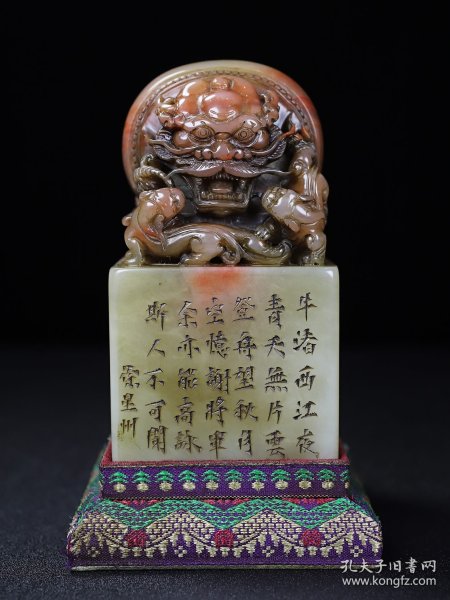 牛渚西江夜
青天無片雲
登舟望秋月
空憶謝將軍
余亦能高詠
斯人不可聞
孔夫子旧书网
www.kongfz.com